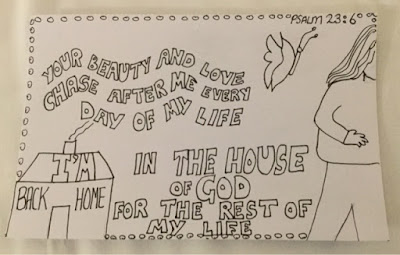 "PSALM 23:6"
YOUR BEAUTY AND LOVE
CHASE AFTER ME EVERY
DAY OF MY LIFE
I'M
BACK HOME
IN THE HOUSE
OF GOD
FOR THE REST OF
MY LIFE